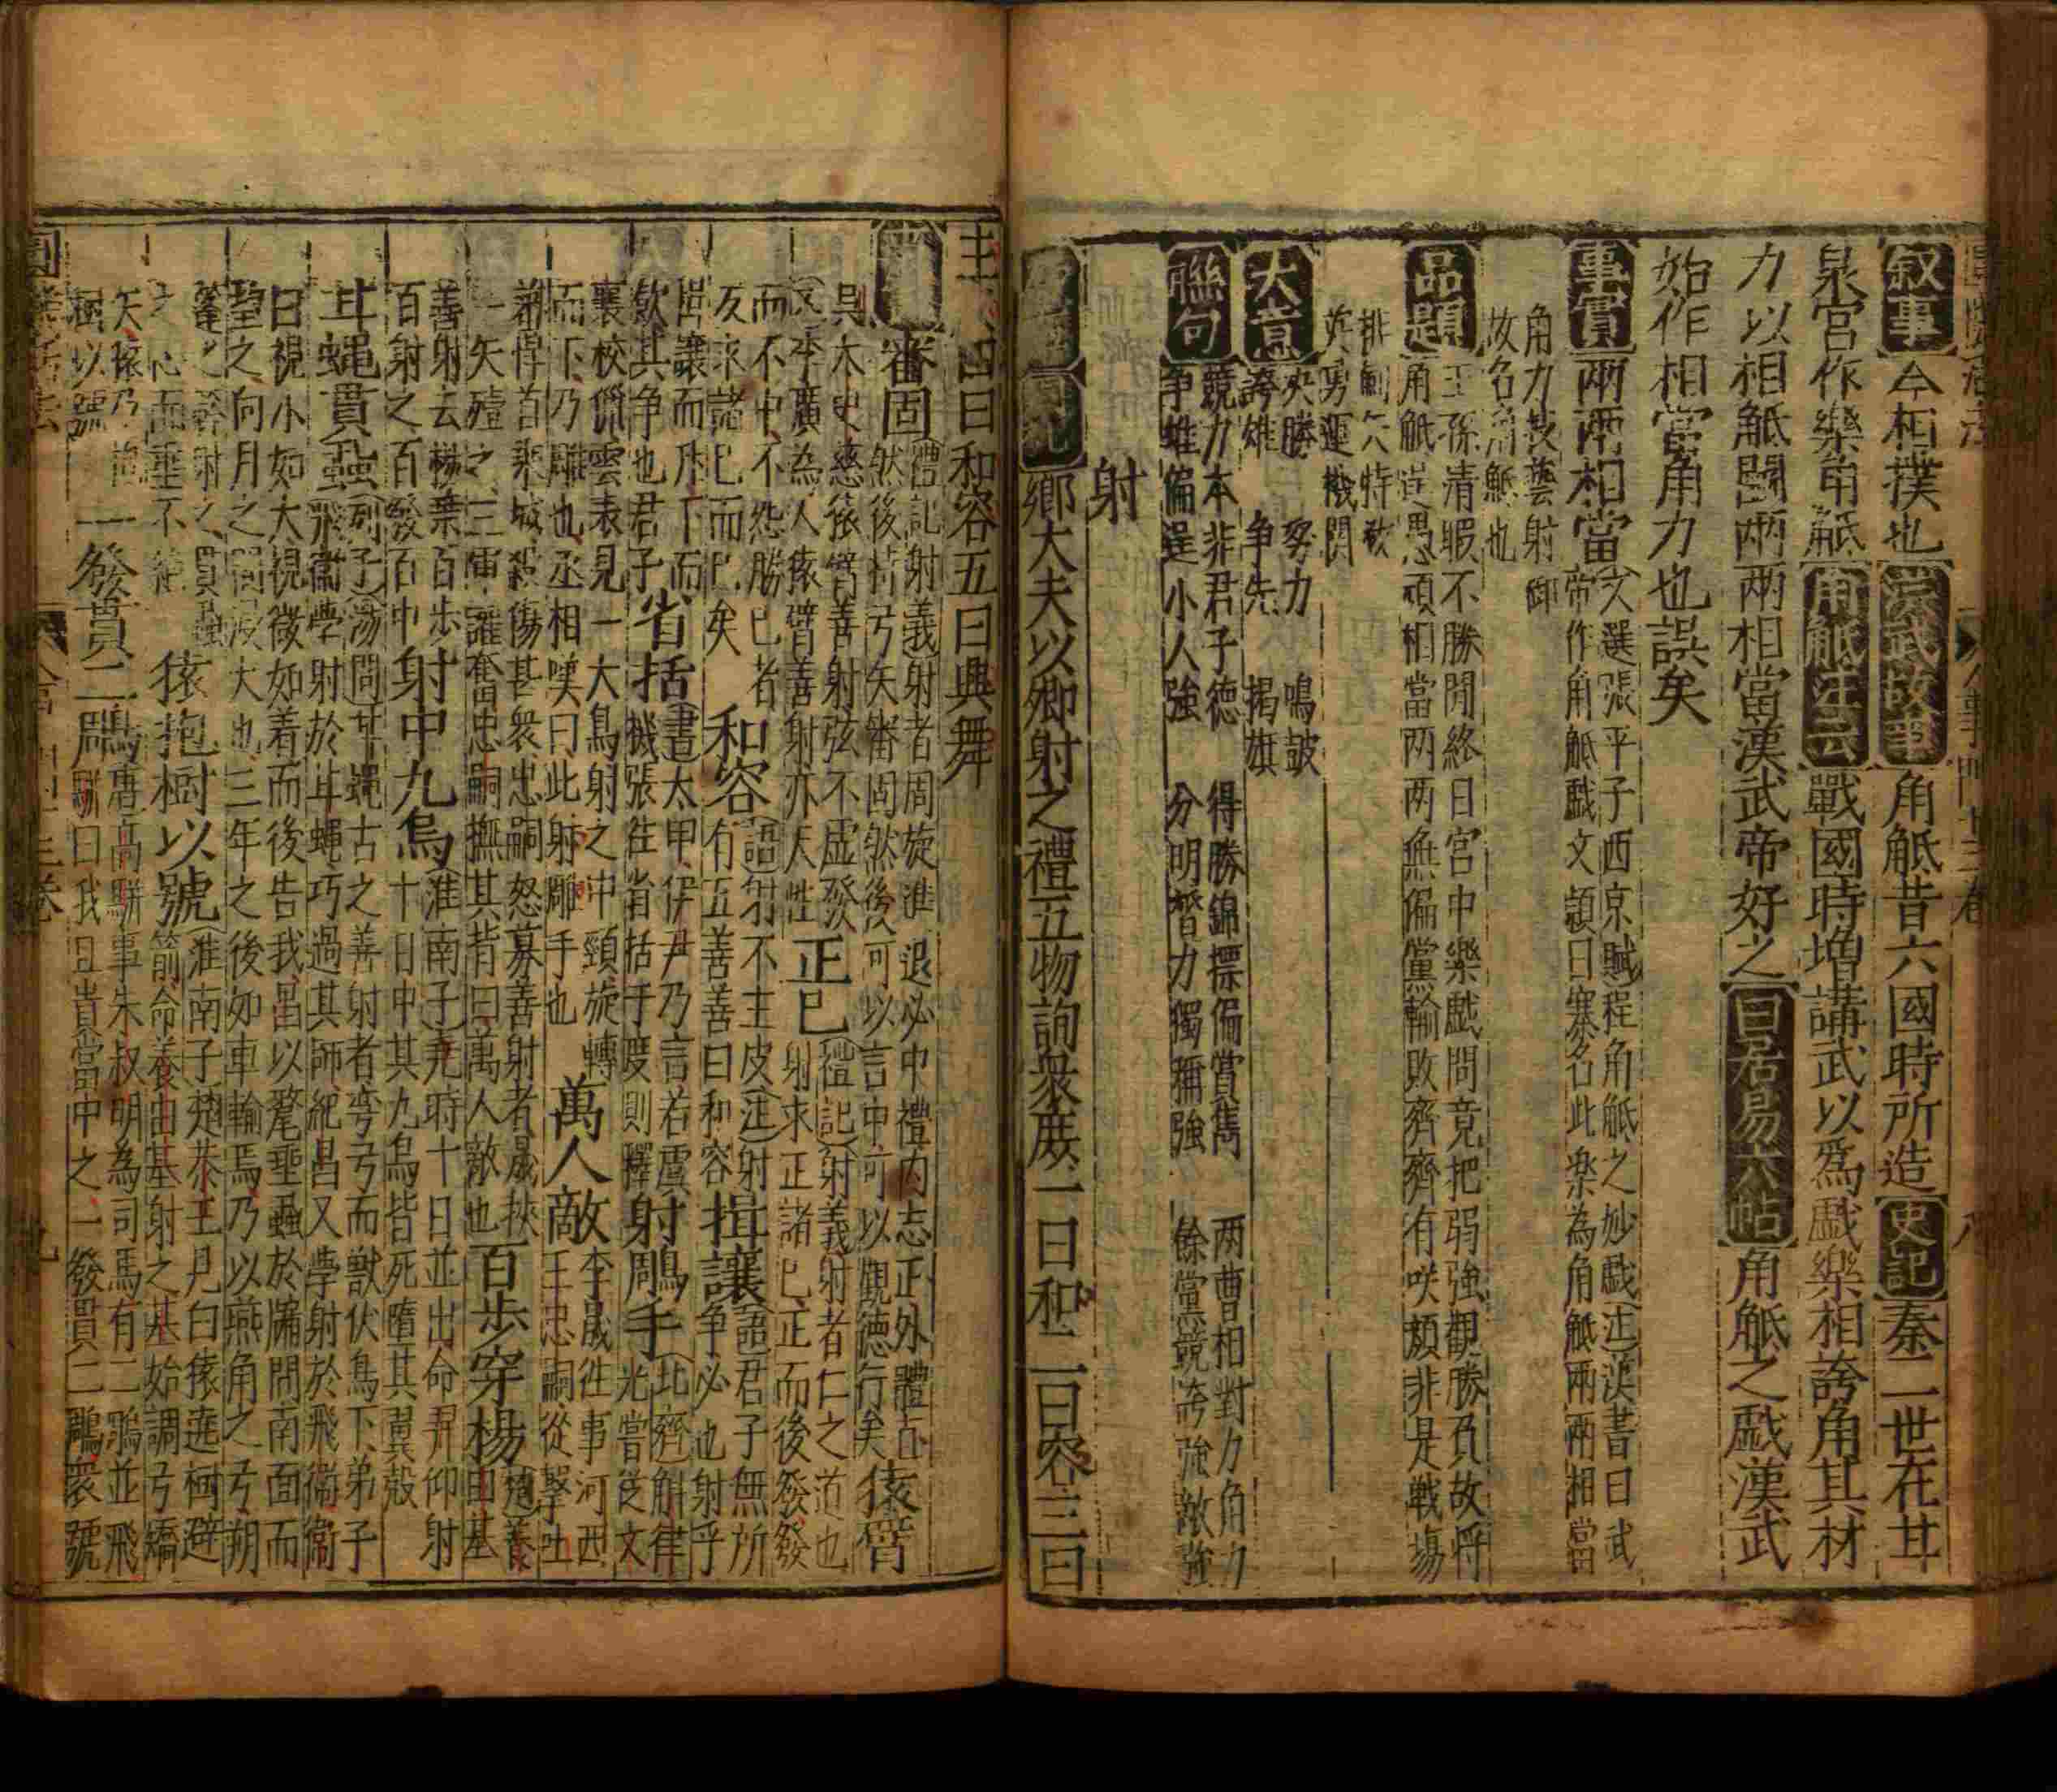 叙事 今相撲也 漢武故事 角觝昔六國時所造 史記 秦二世在甘
泉宫作樂角觝 角觝注云 戰國時增講武以爲戲樂相誇角其材
力以相觝鬬兩兩相當漢武帝好之 白居易六帖 角觝之戲漢武
始作相當角力也誤矣
事實 兩兩相當
文選張平子西京賦程角觝之妙戲注漢書曰武
帝作角觝戲文頴曰秦名此樂為角觝兩兩相當
角力技藝射御
故名角觝也
品題
王孫清暇不勝閒終日宫中樂戲問竟把弱強觀勝負故將
角觝逞愚頑相當两两無偏黨輸敗齊齊有咲顔非是戰場
排劍穴特教
英勇運機関
大意
决勝 努力 鳴鼓
誇雄 争先 揭旗
聯句
競力本非君子德 得勝錦摽偏賞雋 两曹相對力角力
争雄偏逞小人強 分明膂力獨彌強 餘黨競誇強敵強
射
鄉大夫以卿射之禮五物詢衆庶一曰和二曰容三曰
主 四曰和容五曰興舞
審固
禮記射義射者周旋進退必中禮内志正外體直
然後持弓矢審固然後可以言中可以觀德行矣
猿臂
吴太史慈猿臂善射弦不虛發
李廣為人猿臂善射亦天性
正巳
禮記射義射者仁之道也
射求正諸巳正而後發發
而不中不怨勝巳者
反求諸巳而巳矣
和容
語射不主皮注射
有五善善曰和容
揖讓
語君子無所
争必也射乎
揖讓而升下而
飲其争也君子
省括
書太甲伊尹乃言若虞
機張往省括于度則釋
射鵰手
北齊斛律
光嘗從文
襄校獵雲表見一大鳥射之中頸旋轉
而下乃鵰也丞相嘆曰此射雕手也
萬人敵
李晟徃事河西
王忠嗣從擊吐
蕃悍首乘城殺傷甚衆忠嗣怒募善射者晟挾
一矢殪之三軍讙奮忠嗣撫其背曰萬人敵也
百步穿楊
養
由基
善射云楊葉百步
百射之百發百中
射中九烏
淮南子堯時十日並出命羿仰射
十日中其九烏皆死墮其翼殼
甘蠅貫蝨
列子湯問甘蠅古之善射者彎弓而獸伏鳥下弟子
飛衛學射於甘蠅巧過其師紀昌又學射於飛衛衛
曰視小如大視微如着而後告我昌以氂垂蝨於牖間南面而
望之旬月之間浸大也三年之後如車輪焉乃以燕角之弓朔
蓬之簳射之貫蝨
之心而垂不絶
猿抱樹以號
淮南子楚恭王見白猿遶柯避
箭命養由基射之基始調弓矯
矢猿乃抱
樹以號
一發貫二鵰
唐高駢事朱叔明為司馬有二鵰並飛
駢曰我且貴當中之一發貫二鵰衆號